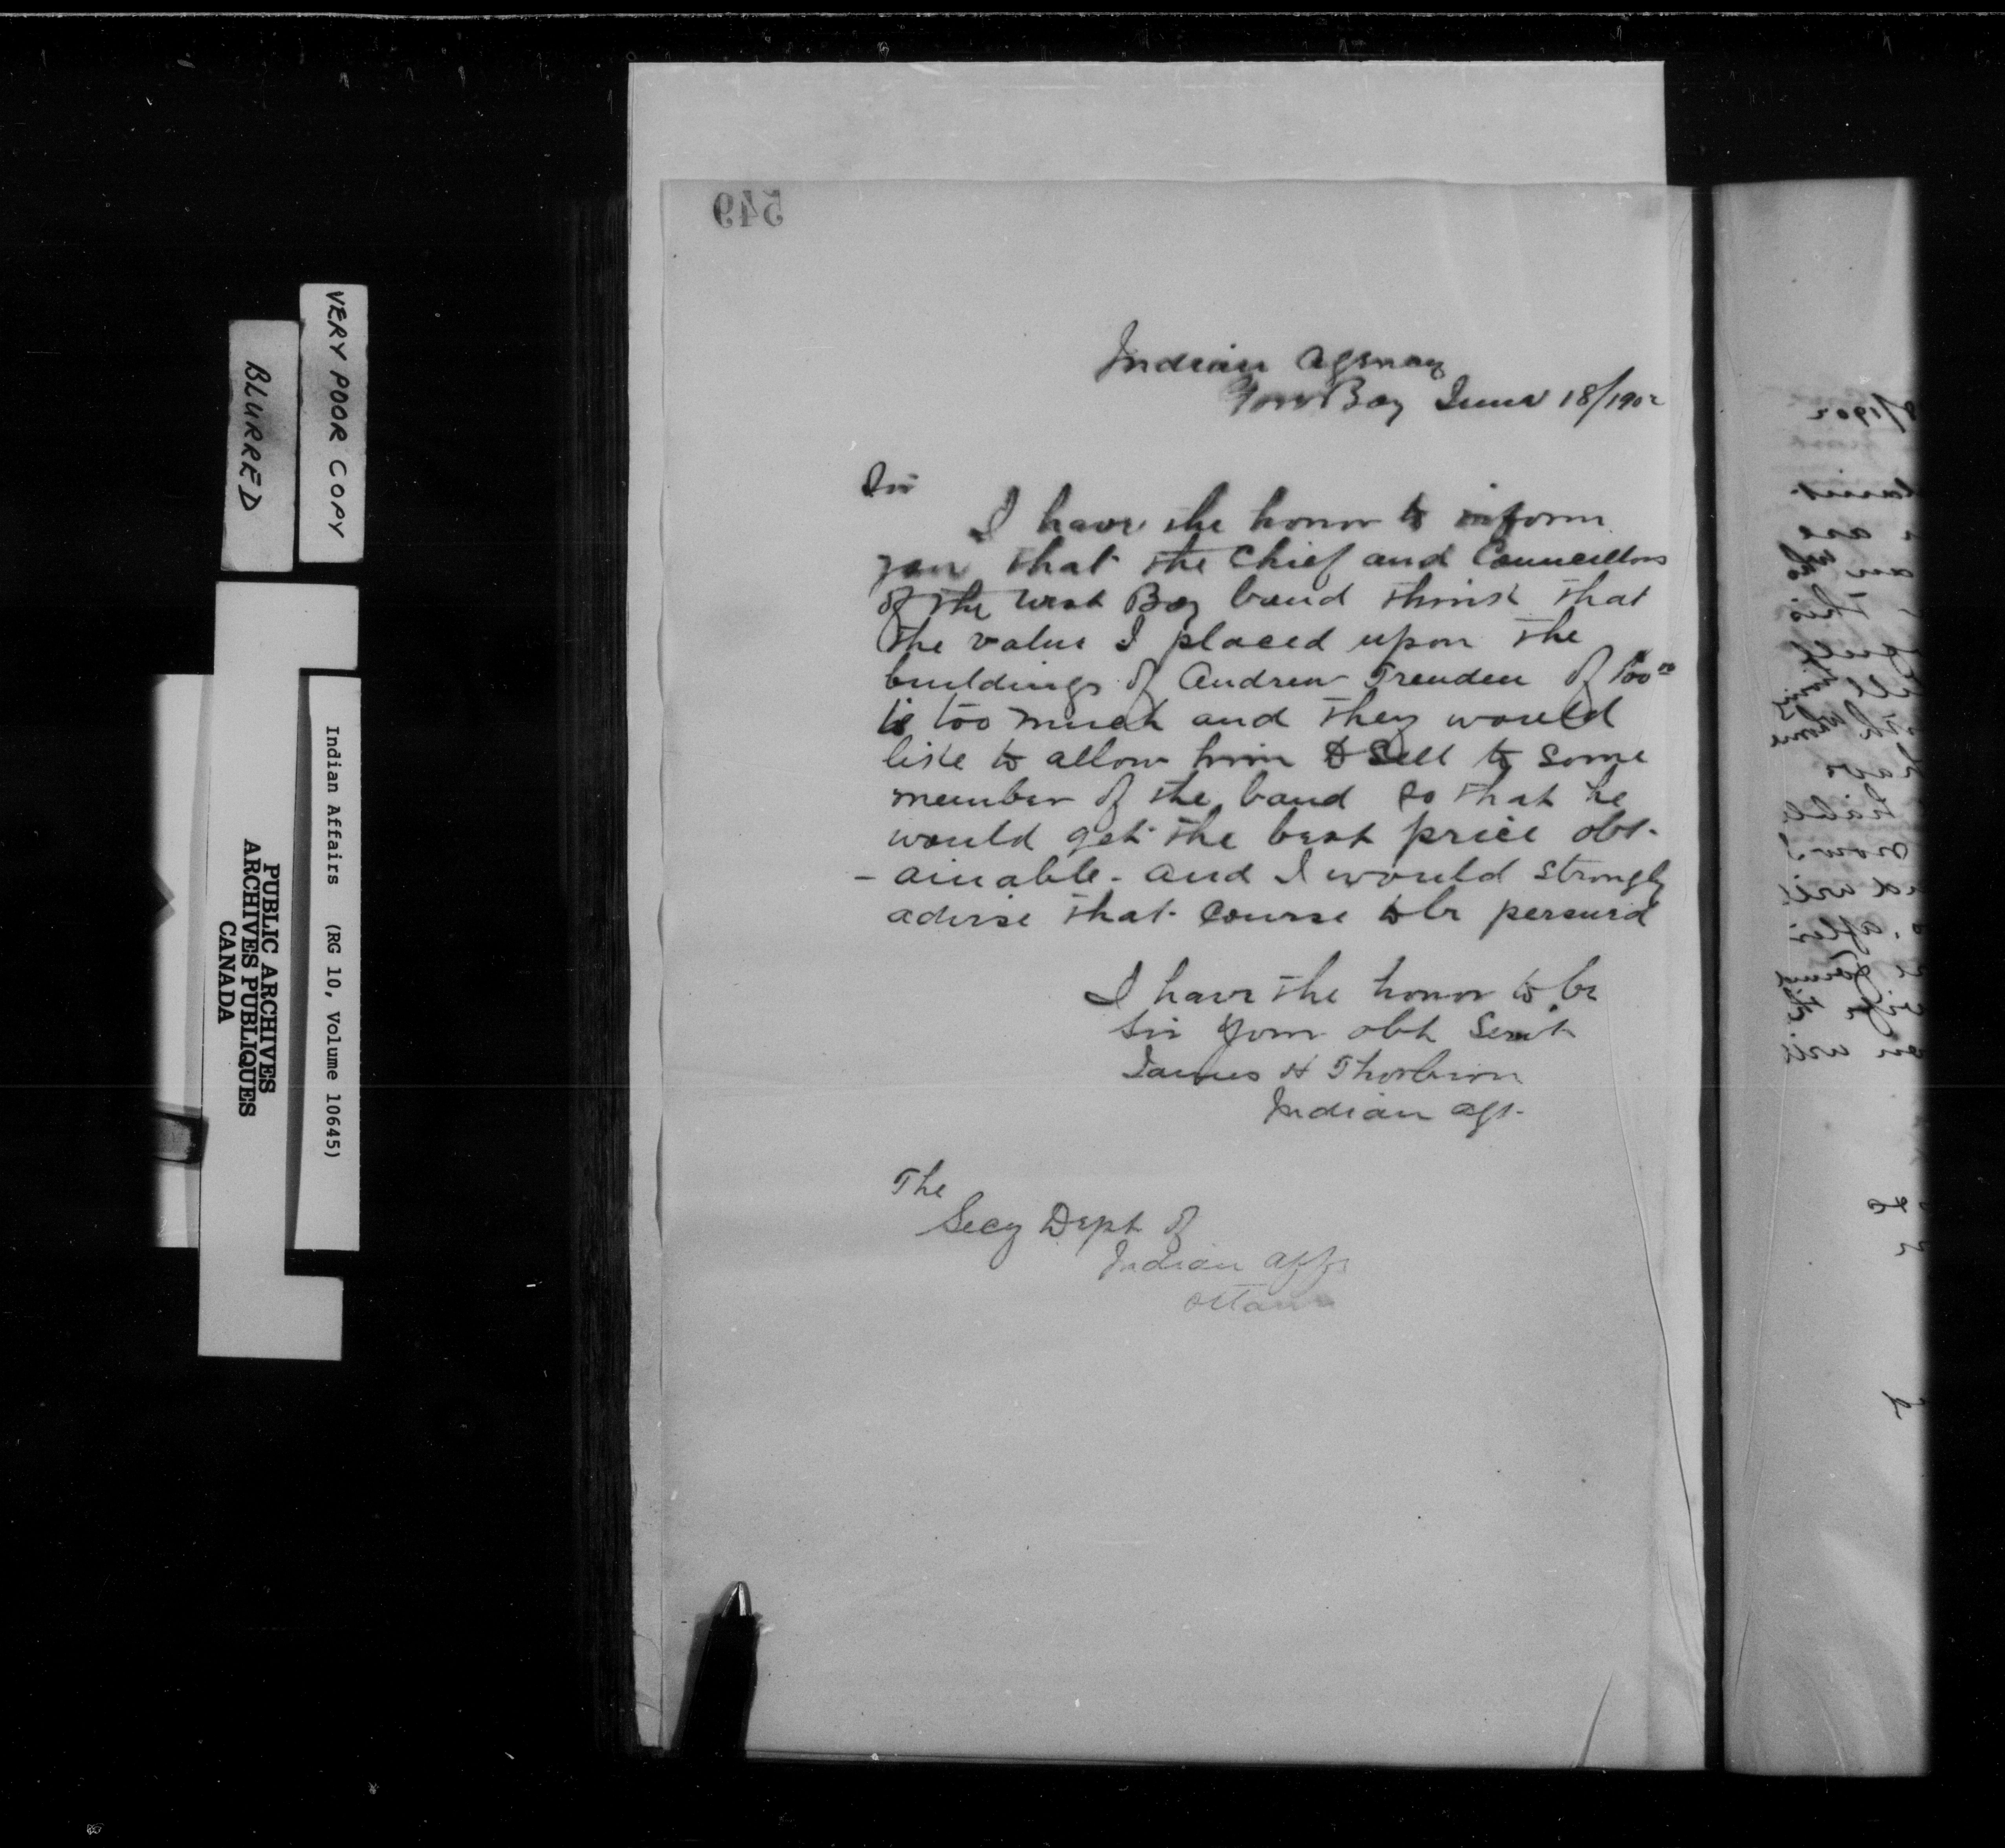 549
Indian Agency
Gore Bay June 18/1902
Sir
I have the honor to inform
you that the Chief and Councillors
of the West Bay band think that
the value I placed upon the
buildings of Andrew Trenden of 100 00
is too much and they would
like to allow him to sell to some
member of the band so that he
would get the best price obt-
- ainable - and I would strongly
advise that course to be persued
I have the honor to be
Sir Your obt Servt
James H Thorburn
Indian Agt.
The
Secy Dept of
Indian Affrs
Ottawa
VERY POOR COPY
BLURRED
Indian Affairs (RG 10, Volume 10645)
PUBLIC ARCHIVES
ARCHIVES PUBLIQUES
CANADA